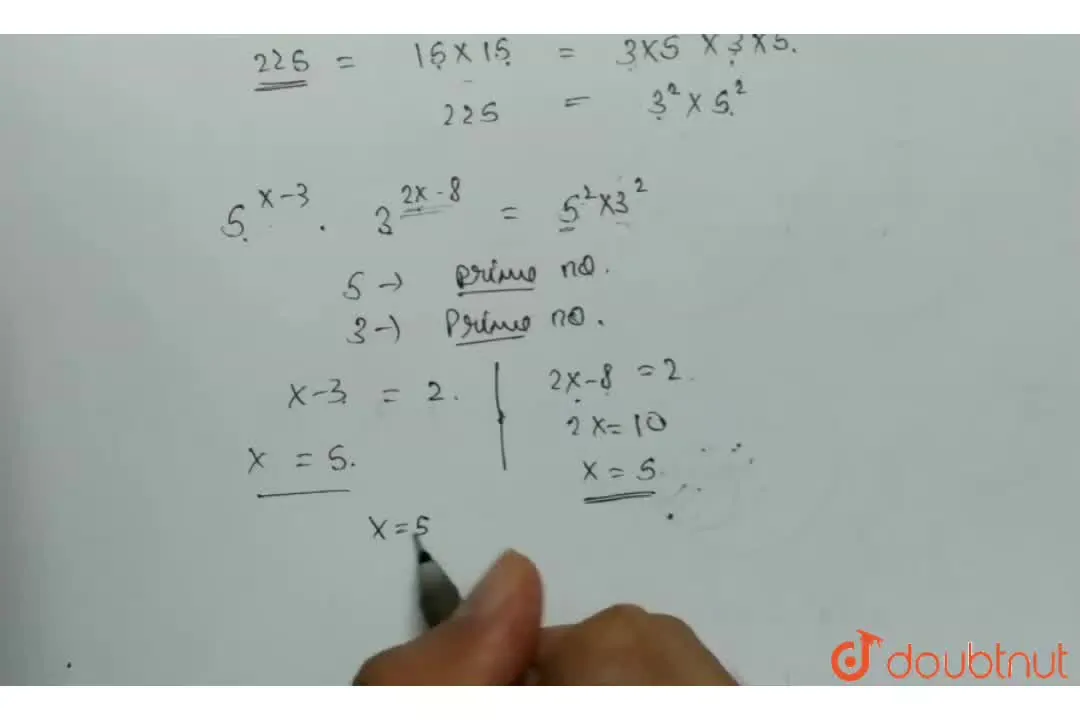 225 = 15 × 15 = 3×5 × 3×5.
225 = 3² × 5²
5^(x-3) . 3^(2x-8) = 5² × 3²
5 → prime no.
3 → Prime no.
x-3 = 2.
x = 5.
2x-8 = 2.
2x = 10
x = 5
x = 5
doubtnut